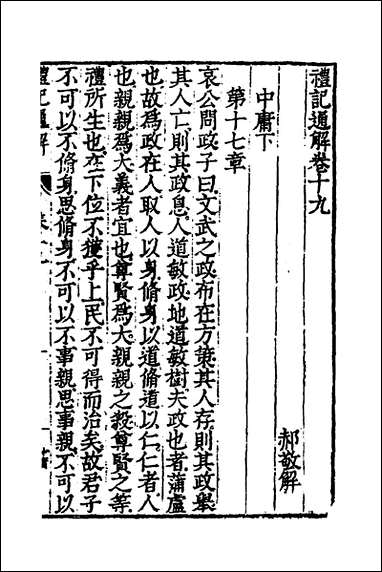 禮記通解卷十九
郝敬解
中庸下
第十七章
哀公問政子曰文武之政布在方策其人存則其政舉
其人亡則其政息人道敏政地道敏樹夫政也者蒲盧
也故爲政在人取人以身脩身以道脩道以仁仁者人
也親親爲大義者宜也尊賢爲大親親之殺尊賢之等
禮所生也在下位不獲乎上民不可得而治矣故君子
不可以不脩身思脩身不可以不事親思事親不可以
禮記通解